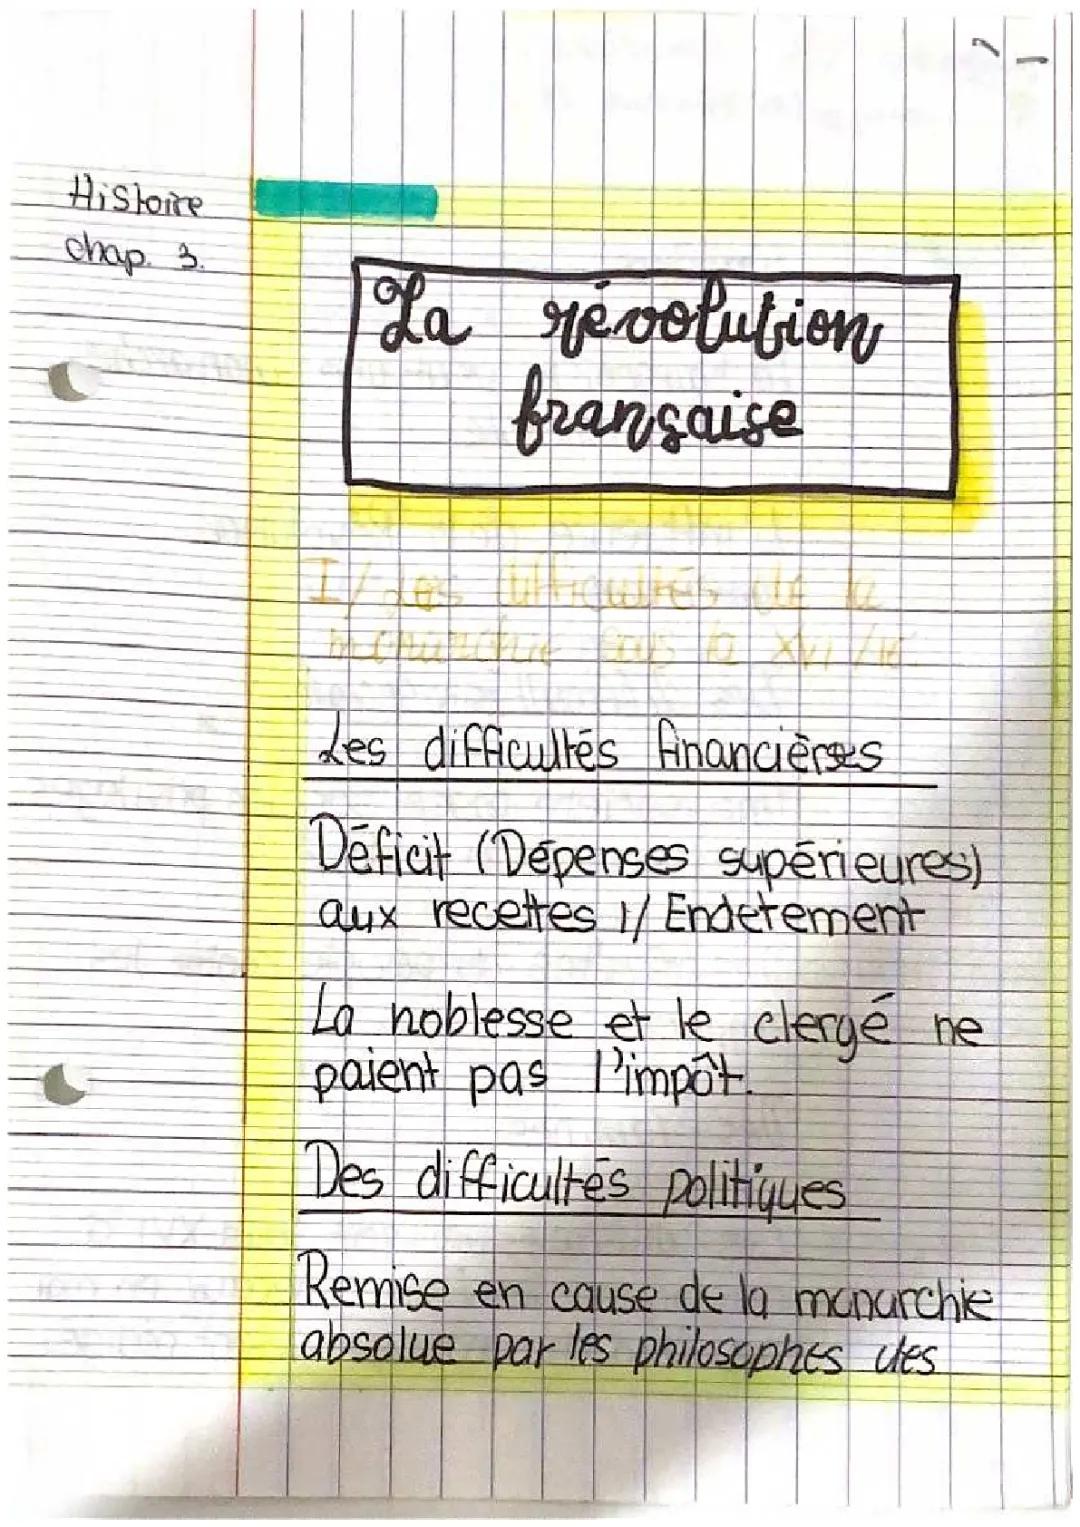 Histoire
chap. 3.
La révolution
française
I/ Les difficultés de la
monarchie sous la XVI /16.
Les difficultés financières
Déficit (Dépenses supérieures)
aux recettes 1/ Endetement
La noblesse et le clergé ne
paient pas l'impôt.
Des difficultés politiques
Remise en cause de la monarchie
absolue par les philosophes des